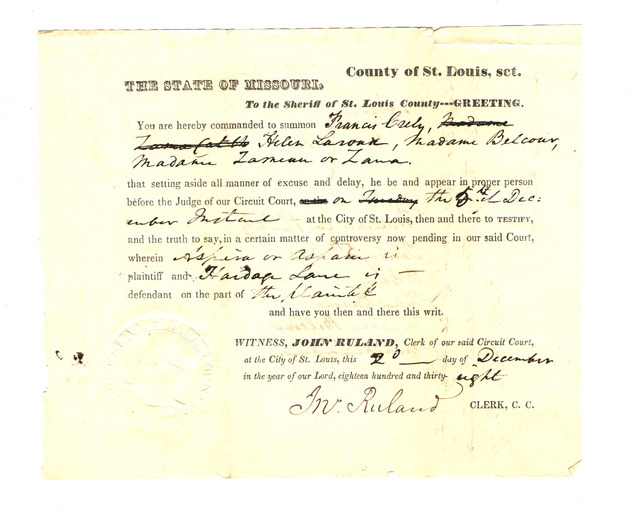 County of St. Louis, sct.
THE STATE OF MISSOURI.
To the Sheriff of St. Louis County---GREETING.
You are hereby commanded to summon Francis Crely, Madame
Helen Laroux, Madame Belcour,
Madame Lameau or Lana.
that setting aside all manner of excuse and delay, he be and appear in proper person
before the Judge of our Circuit Court, on Tuesday the 5th Dec:
ember Instant — at the City of St. Louis, then and there to TESTIFY,
and the truth to say, in a certain matter of controversy now pending in our said Court,
wherein Aspisa or is
plaintiff and Hardage Lane is —
defendant on the part of the plaintiff
and have you then and there this writ.
WITNESS, JOHN RULAND, Clerk of our said Circuit Court,
at the City of St. Louis, this day of December
in the year of our Lord, eighteen hundred and thirty-eight
Jno. Ruland CLERK, C. C.